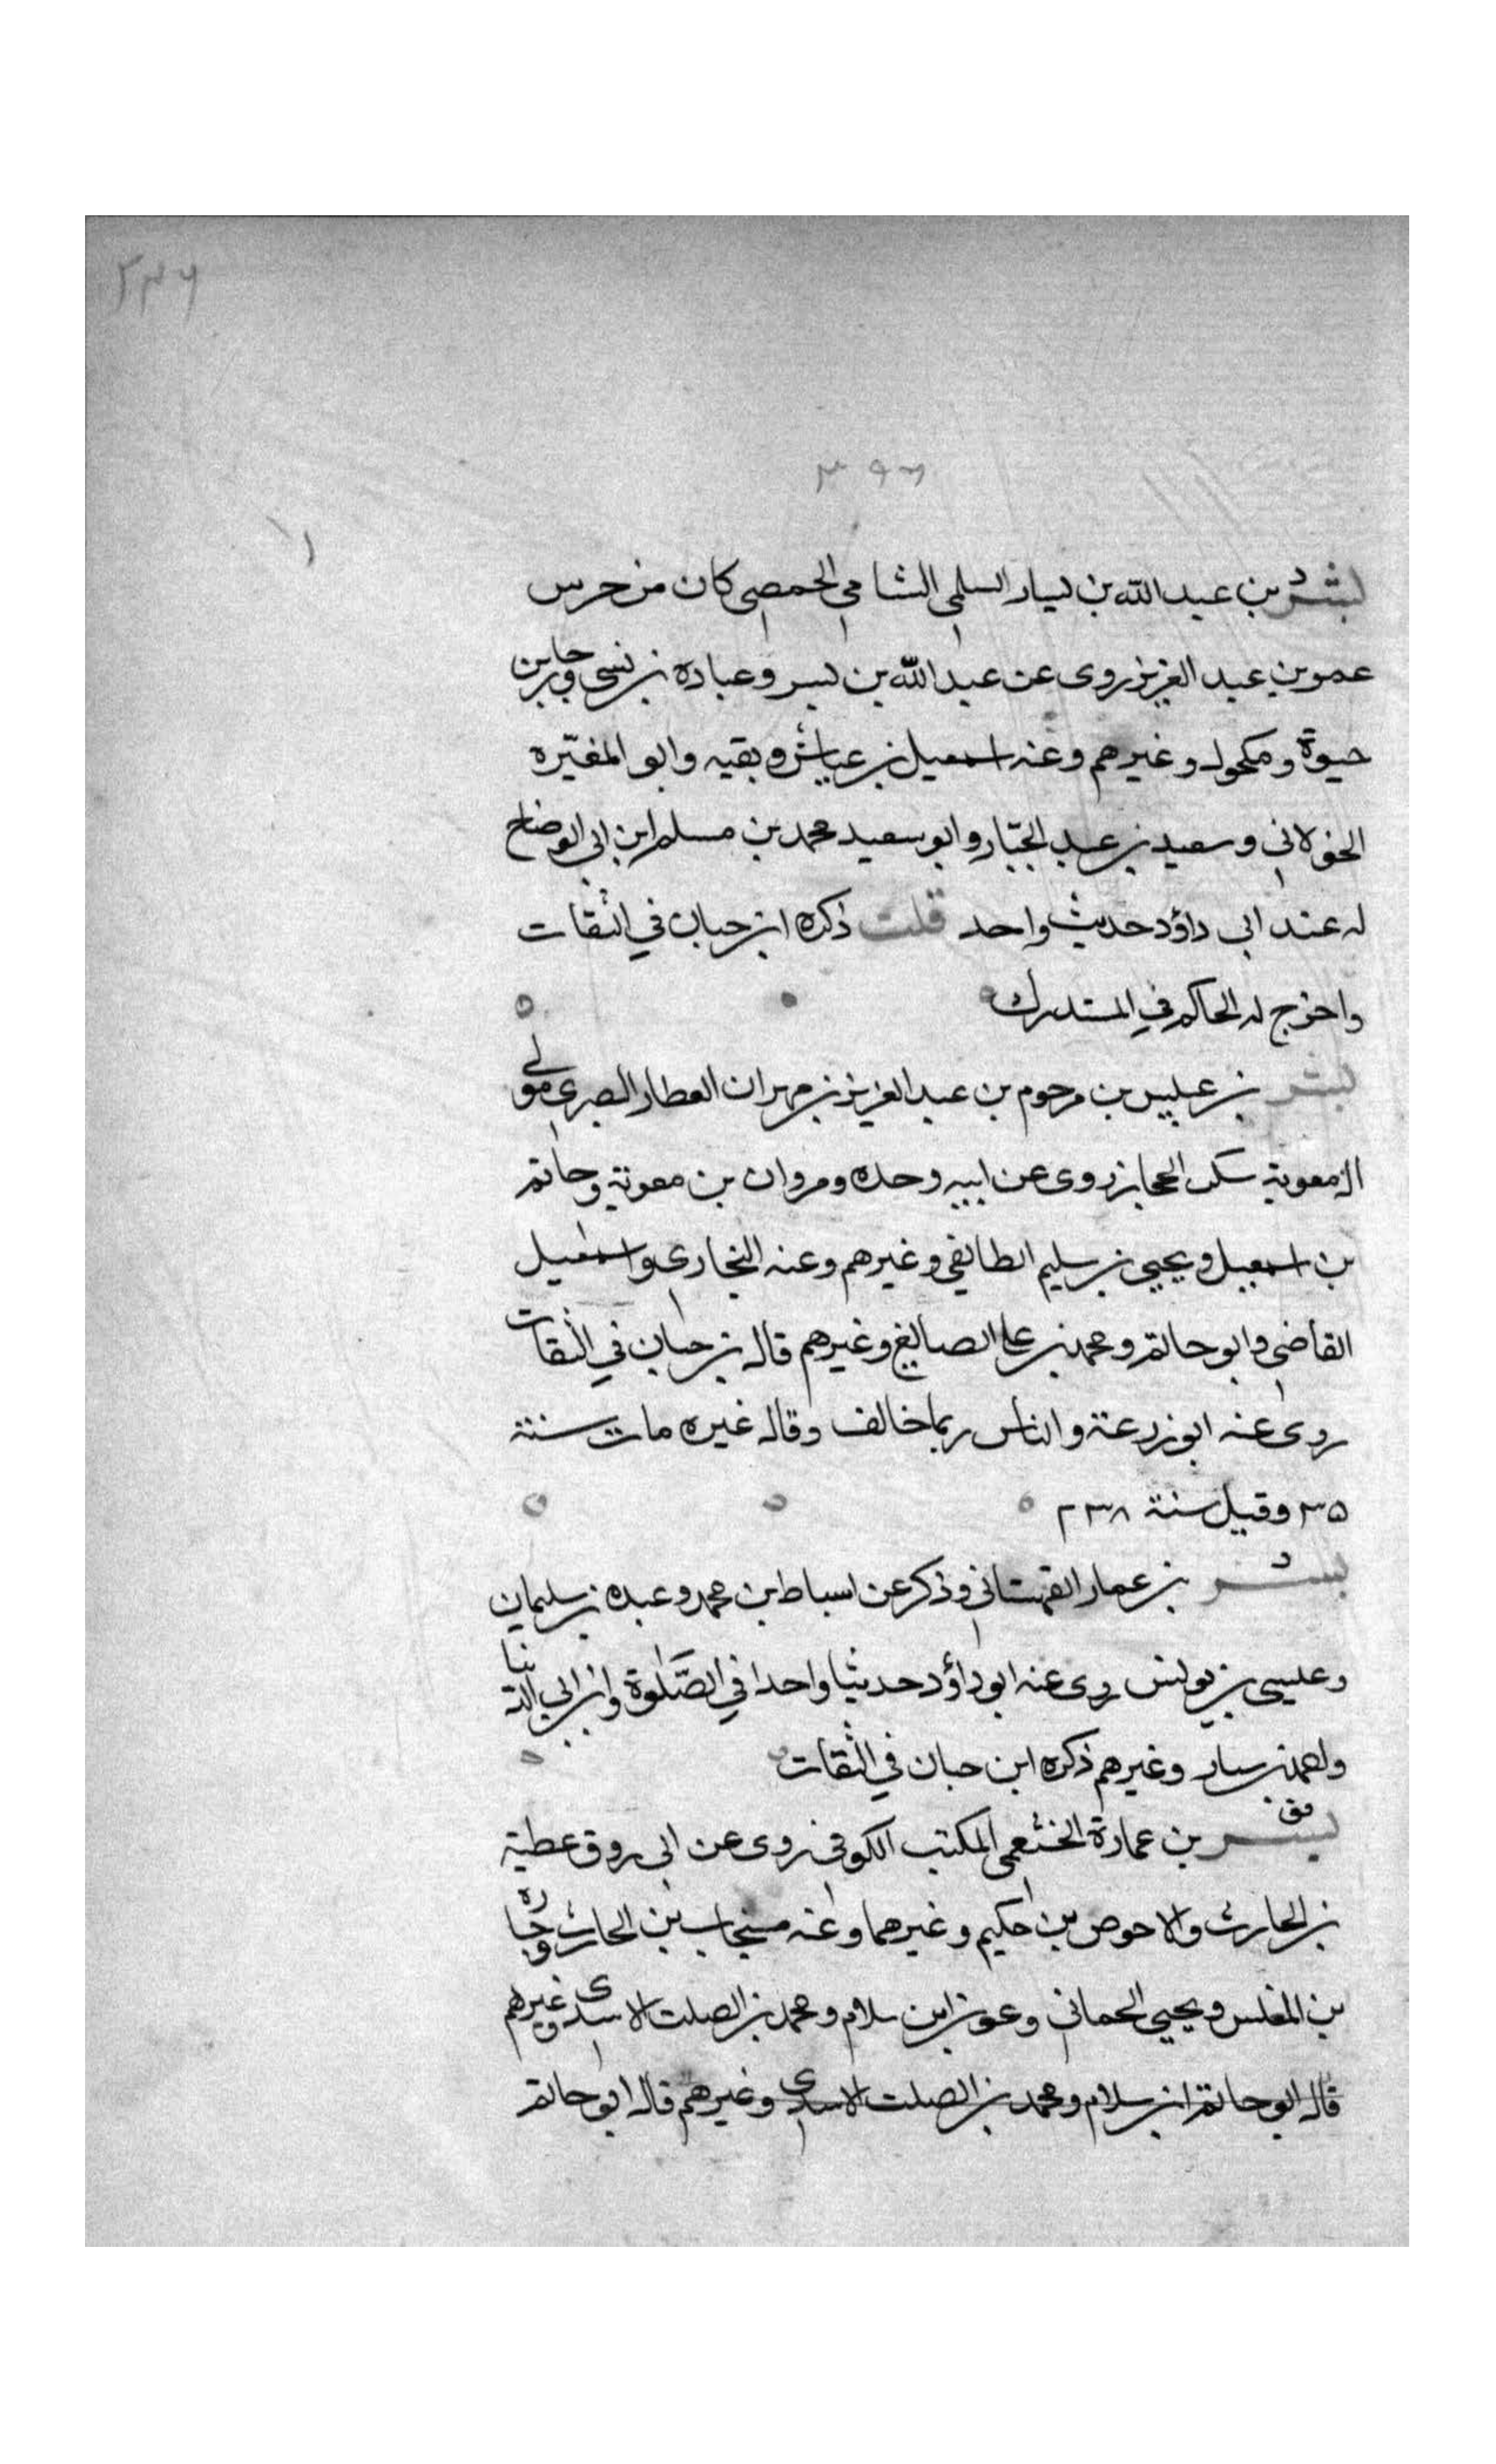 ٢٣٦
٣٩٦
بشر بن عبد الله بن يسار السلمي الشامي الحمصي كان من حرس
عمر بن عبد العزيز روى عن عبد الله بن بسر وعبادة بن نسي وجابر بن
حيوة ومكحول وغيرهم وعنه اسمعيل بن عياش وبقيه وابو المغيره
الخولاني وسعيد بن عبد الجبار وابو سعيد محمد بن مسلم ابن ابي الوضاح
له عند ابي داؤد حديث واحد قلت ذكره ابن حبان في الثقات
واخرج له الحاكم في المستدرك
بشر بن عبيس بن مرحوم بن عبد العزيز بن مهران العطار البصرى مولى
ال معوية سكن الحجاز روى عن ابيه وجده ومروان بن معوية وحاتم
بن اسمعيل ويحيى بن سليم الطايفي وغيرهم وعنه البخارى واسمعيل
القاضي وابو حاتم ومحمد بن على الصايغ وغيرهم قال بن حبان في الثقات
روى عنه ابو زرعة والناس ربما خالف وقال غيره مات سنة
٣٥ وقيل سنة ٢٣٨
بشر بن عمار القهستاني وذكر عن اسباط بن محمد وعبده بن سليمان
وعيسى بن يونس روى عنه ابو داؤد حديثا واحدا في الصلوة وابن ابي الدنيا
واحمد بن سيار وغيرهم ذكره ابن حبان في الثقات
فق
بشر بن عمارة الخثعمي المكتب الكوفي روى عن ابى روق عطية
بن الحارث والاحوص بن حكيم وغيرهما وعنه منجاب بن الحارث وجباره
بن المغلس ويحيى الحماني وعون ابن سلام ومحمد بن الصلت الاسدى وغيرهم
قال ابو حاتم ابن سلام ومحمد بن الصلت الاسدى وغيرهم قال ابو حاتم